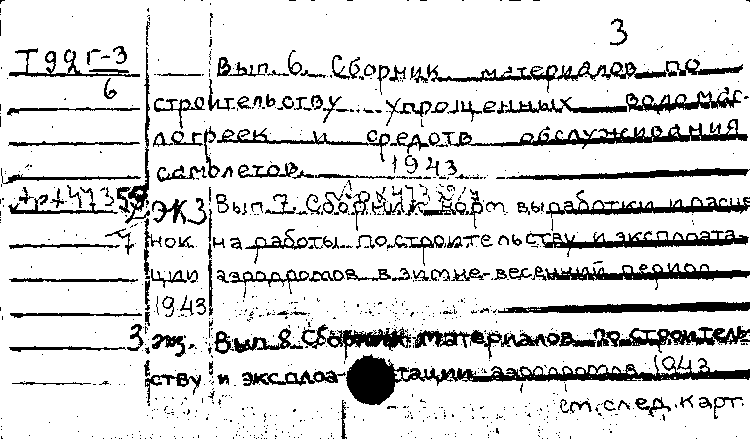 3
Т 92 г-3 Вып. 6. Сборник материалов по
6
строительству упрощенных водомас-
логреек и средств обслуживания
самолетов. 1943
Вып. 7. Сборник норм выработки и расце
экз
7 нок на работы по строительству и эксплоата-
ции аэродромов в зимне-весенний период
1943
3 экз. Вып. 8. Сборник материалов по строитель
ству и эксплоатации аэродромов 1943
см. след. карт.